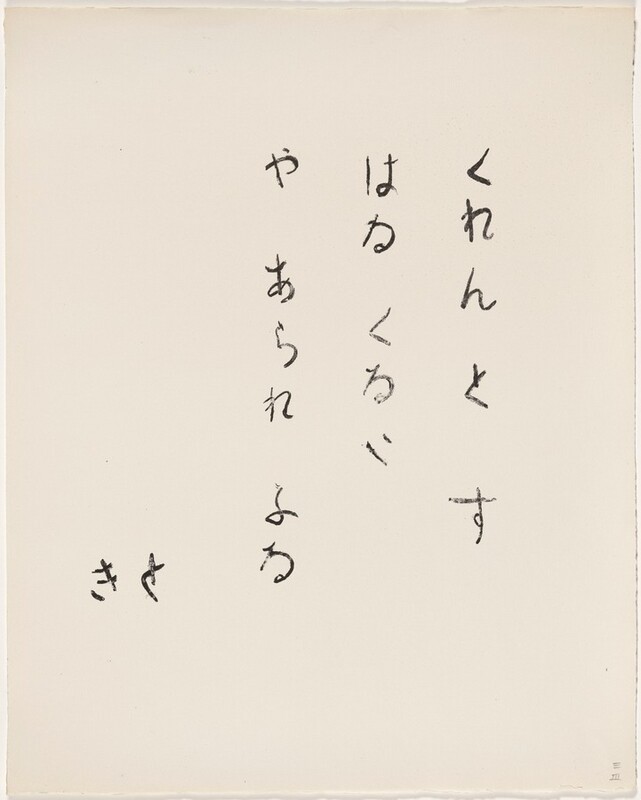 くれんとす
はる くるい
や あられ ふる
とき